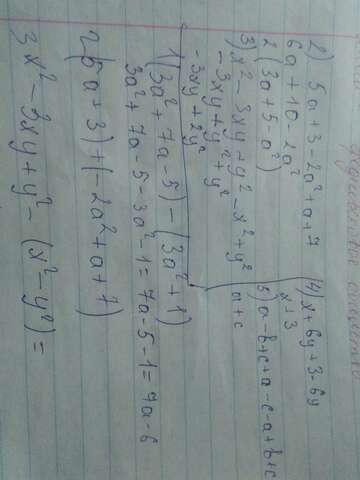 2) 5a+3-2a²+a+7
6a+10-2a²
2(3a+5-a²)
3) x²-3xy+y²-x²+y²
-3xy+y²+y²
-3xy+2y²
4) x+6y+3-6y
x+3
5) a-b+c+a-c-a+b+c
a+c
1) (3a²+7a-5)-(3a²+1)
3a²+7a-5-3a²-1=7a-5-1=7a-6
2(5a+3)+(-2a²+a+7)
3 x²-3xy+y²-(x²-y²)=